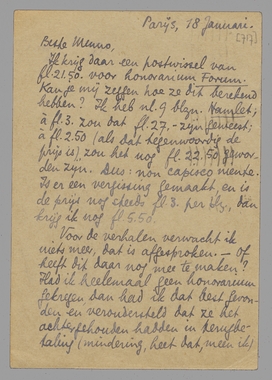 Parijs, 18 Januari.
Beste Menno,
Ik krijg daar een postwissel van
fl. 21.50 voor honorarium Forum.
Kan je mij zeggen hoe ze dit berekend
hebben? Ik heb nl. 9 blzn. Hamlet;
à fl. 3. zou dat fl. 27.- zijn geweest;
à fl. 2.50 (als dat tegenwoordig de
prijs is) zou het nog fl. 22.50 gewor-
den zijn. Dus: non capisco niente.
Is er een vergissing gemaakt, en is
de prijs nog steeds fl. 3. per blz., dan
krijg ik nog fl. 5.50.
Voor de verhalen verwacht ik
niets meer, dat is afgesproken. — Of
heeft dit daar nog mee te maken?
Had ik heelemaal geen honorarium
gekregen dan had ik dat best gevon-
den en verondersteld dat ze het
achtergehouden hadden in terugbe-
taling (mindering, heet dat, meen ik)